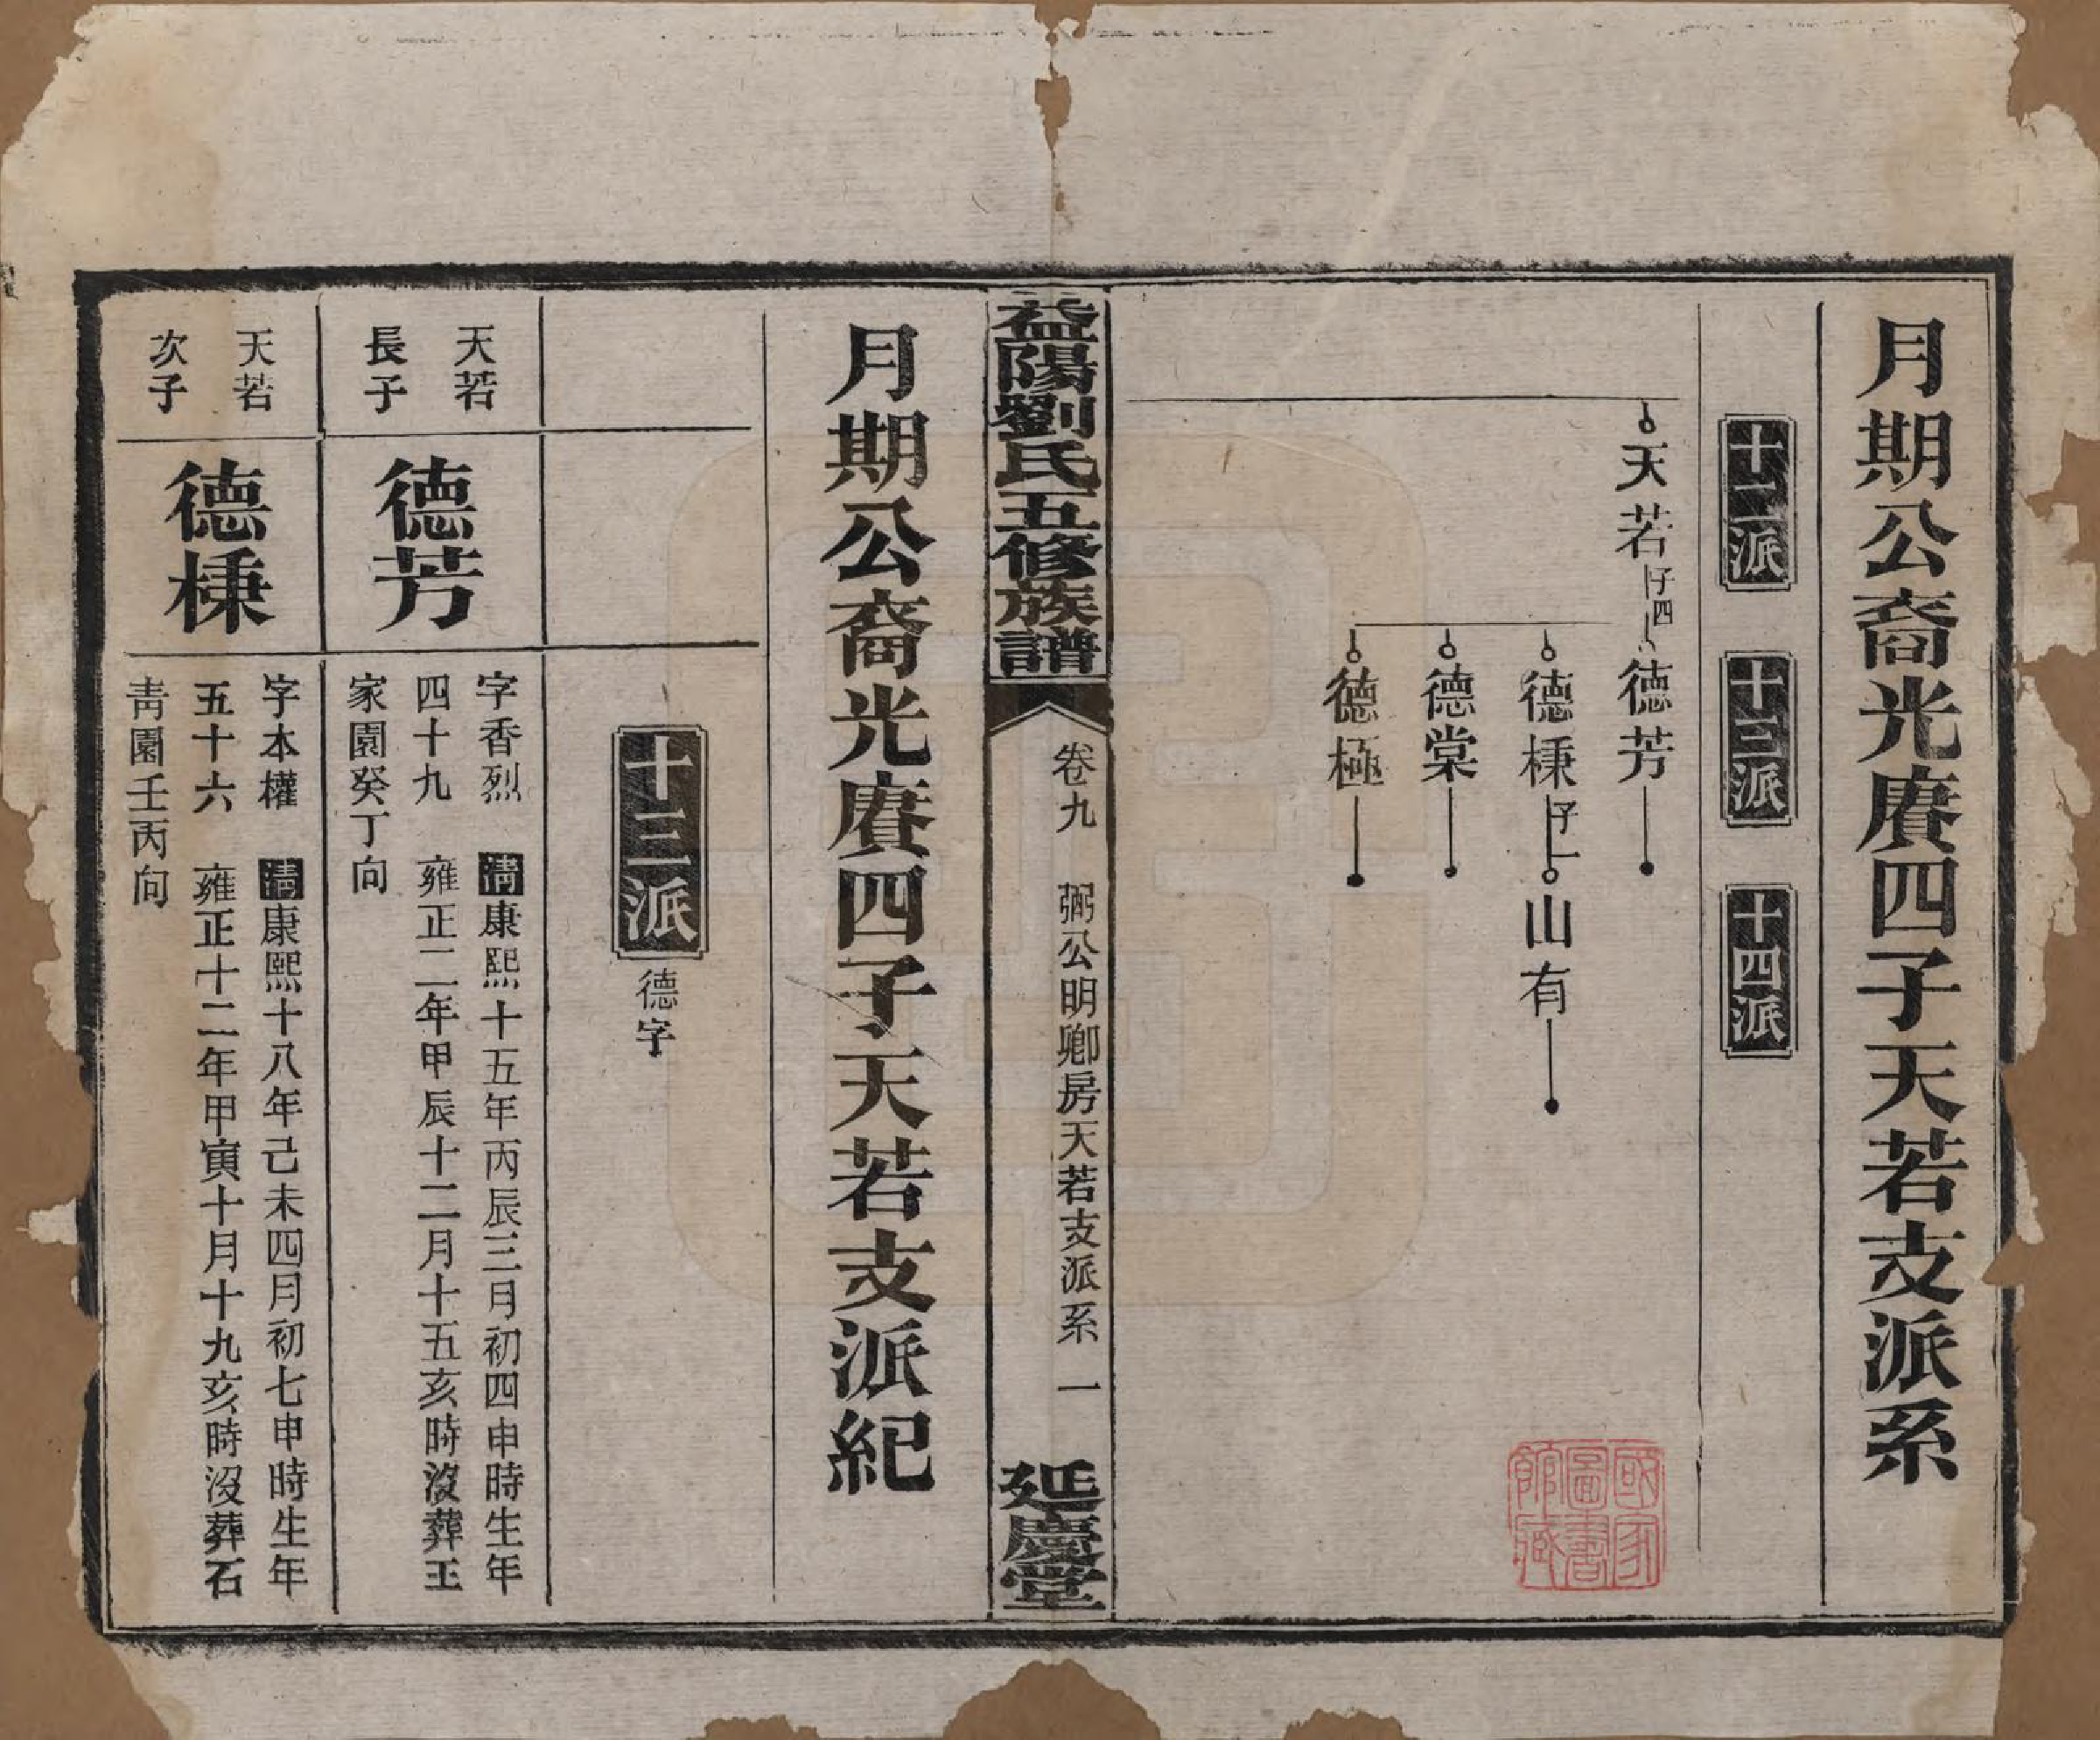 月期公裔光賡四子天若支派系
十二派
十三派
十四派
天若
子四
德芳
德棅
子一
山有
德棠
德極
國家
圖書
館藏
益陽劉氏五修族譜
卷九 弼公明卿房天若支派系 一
延慶堂
月期公裔光賡四子天若支派紀
十三派 德字
天若
長子
德芳
字香烈 清康熙十五年丙辰三月初四申時生年
四十九 雍正二年甲辰十二月十五亥時沒葬王
家園癸丁向
天若
次子
德棅
字本權 清康熙十八年己未四月初七申時生年
五十六 雍正十二年甲寅十月十九亥時沒葬石
青園壬丙向